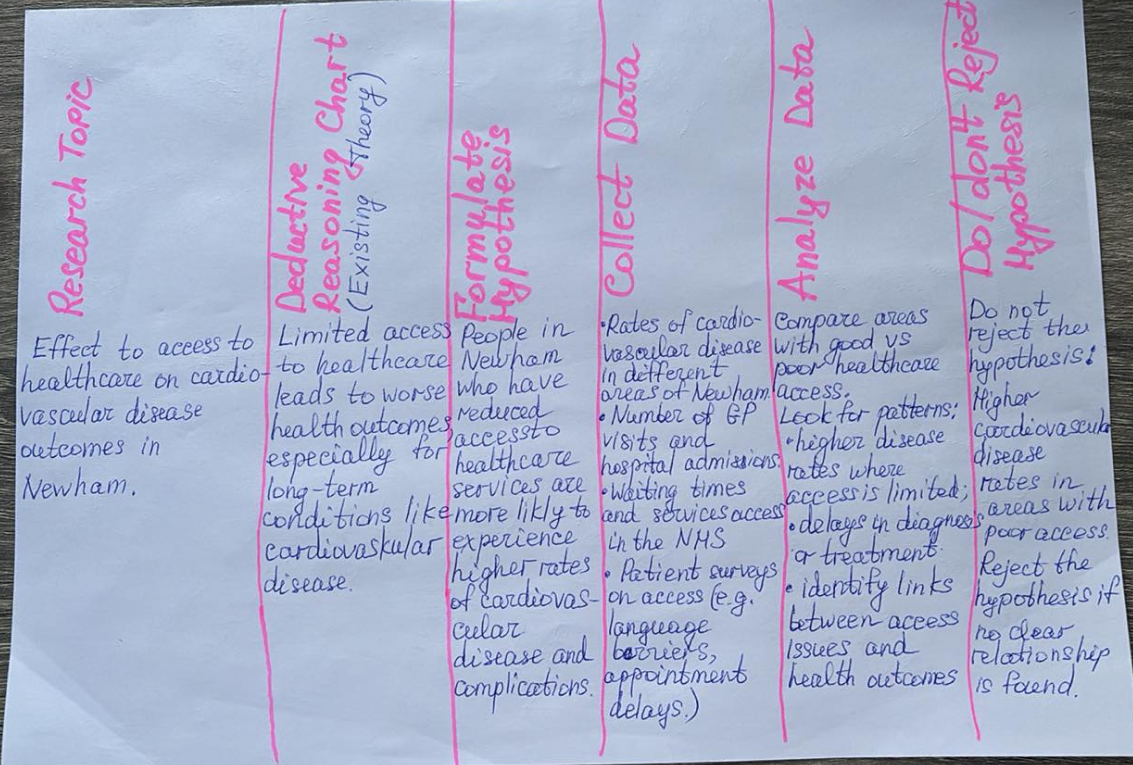 Research Topic
Effect to access to
healthcare on cardio-
vascular disease
outcomes in
Newham.
Deductive
Reasoning Chart
(Existing Theory)
Limited access
to healthcare
leads to worse
health outcomes
especially for
long-term
conditions like
cardiovaskular
disease.
Formulate
Hypothesis
People in
Newham
who have
reduced
access to
healthcare
services are
more likly to
experience
higher rates
of cardiovas-
cular
disease and
complications.
Collect Data
•Rates of cardio-
vascular disease
in different
areas of Newham
• Number of GP
visits and
hospital admissions
•Waiting times
and services access
in the NHS
• Patient surveys
on access (e.g.
language
berriers,
appointment
delays.)
Analyze Data
Compare areas
with good vs
poor healthcare
access.
Look for patterns:
•higher disease
rates where
access is limited;
•delays in diagnosis
or treatment.
• identify links
between access
issues and
health outcomes
Do/don't Reject
Hypothesis
Do not
reject the
hypothesis:
Higher
cardiovascular
disease
rates in
areas with
poor access.
Reject the
hypothesis if
no clear
relationship
is found.